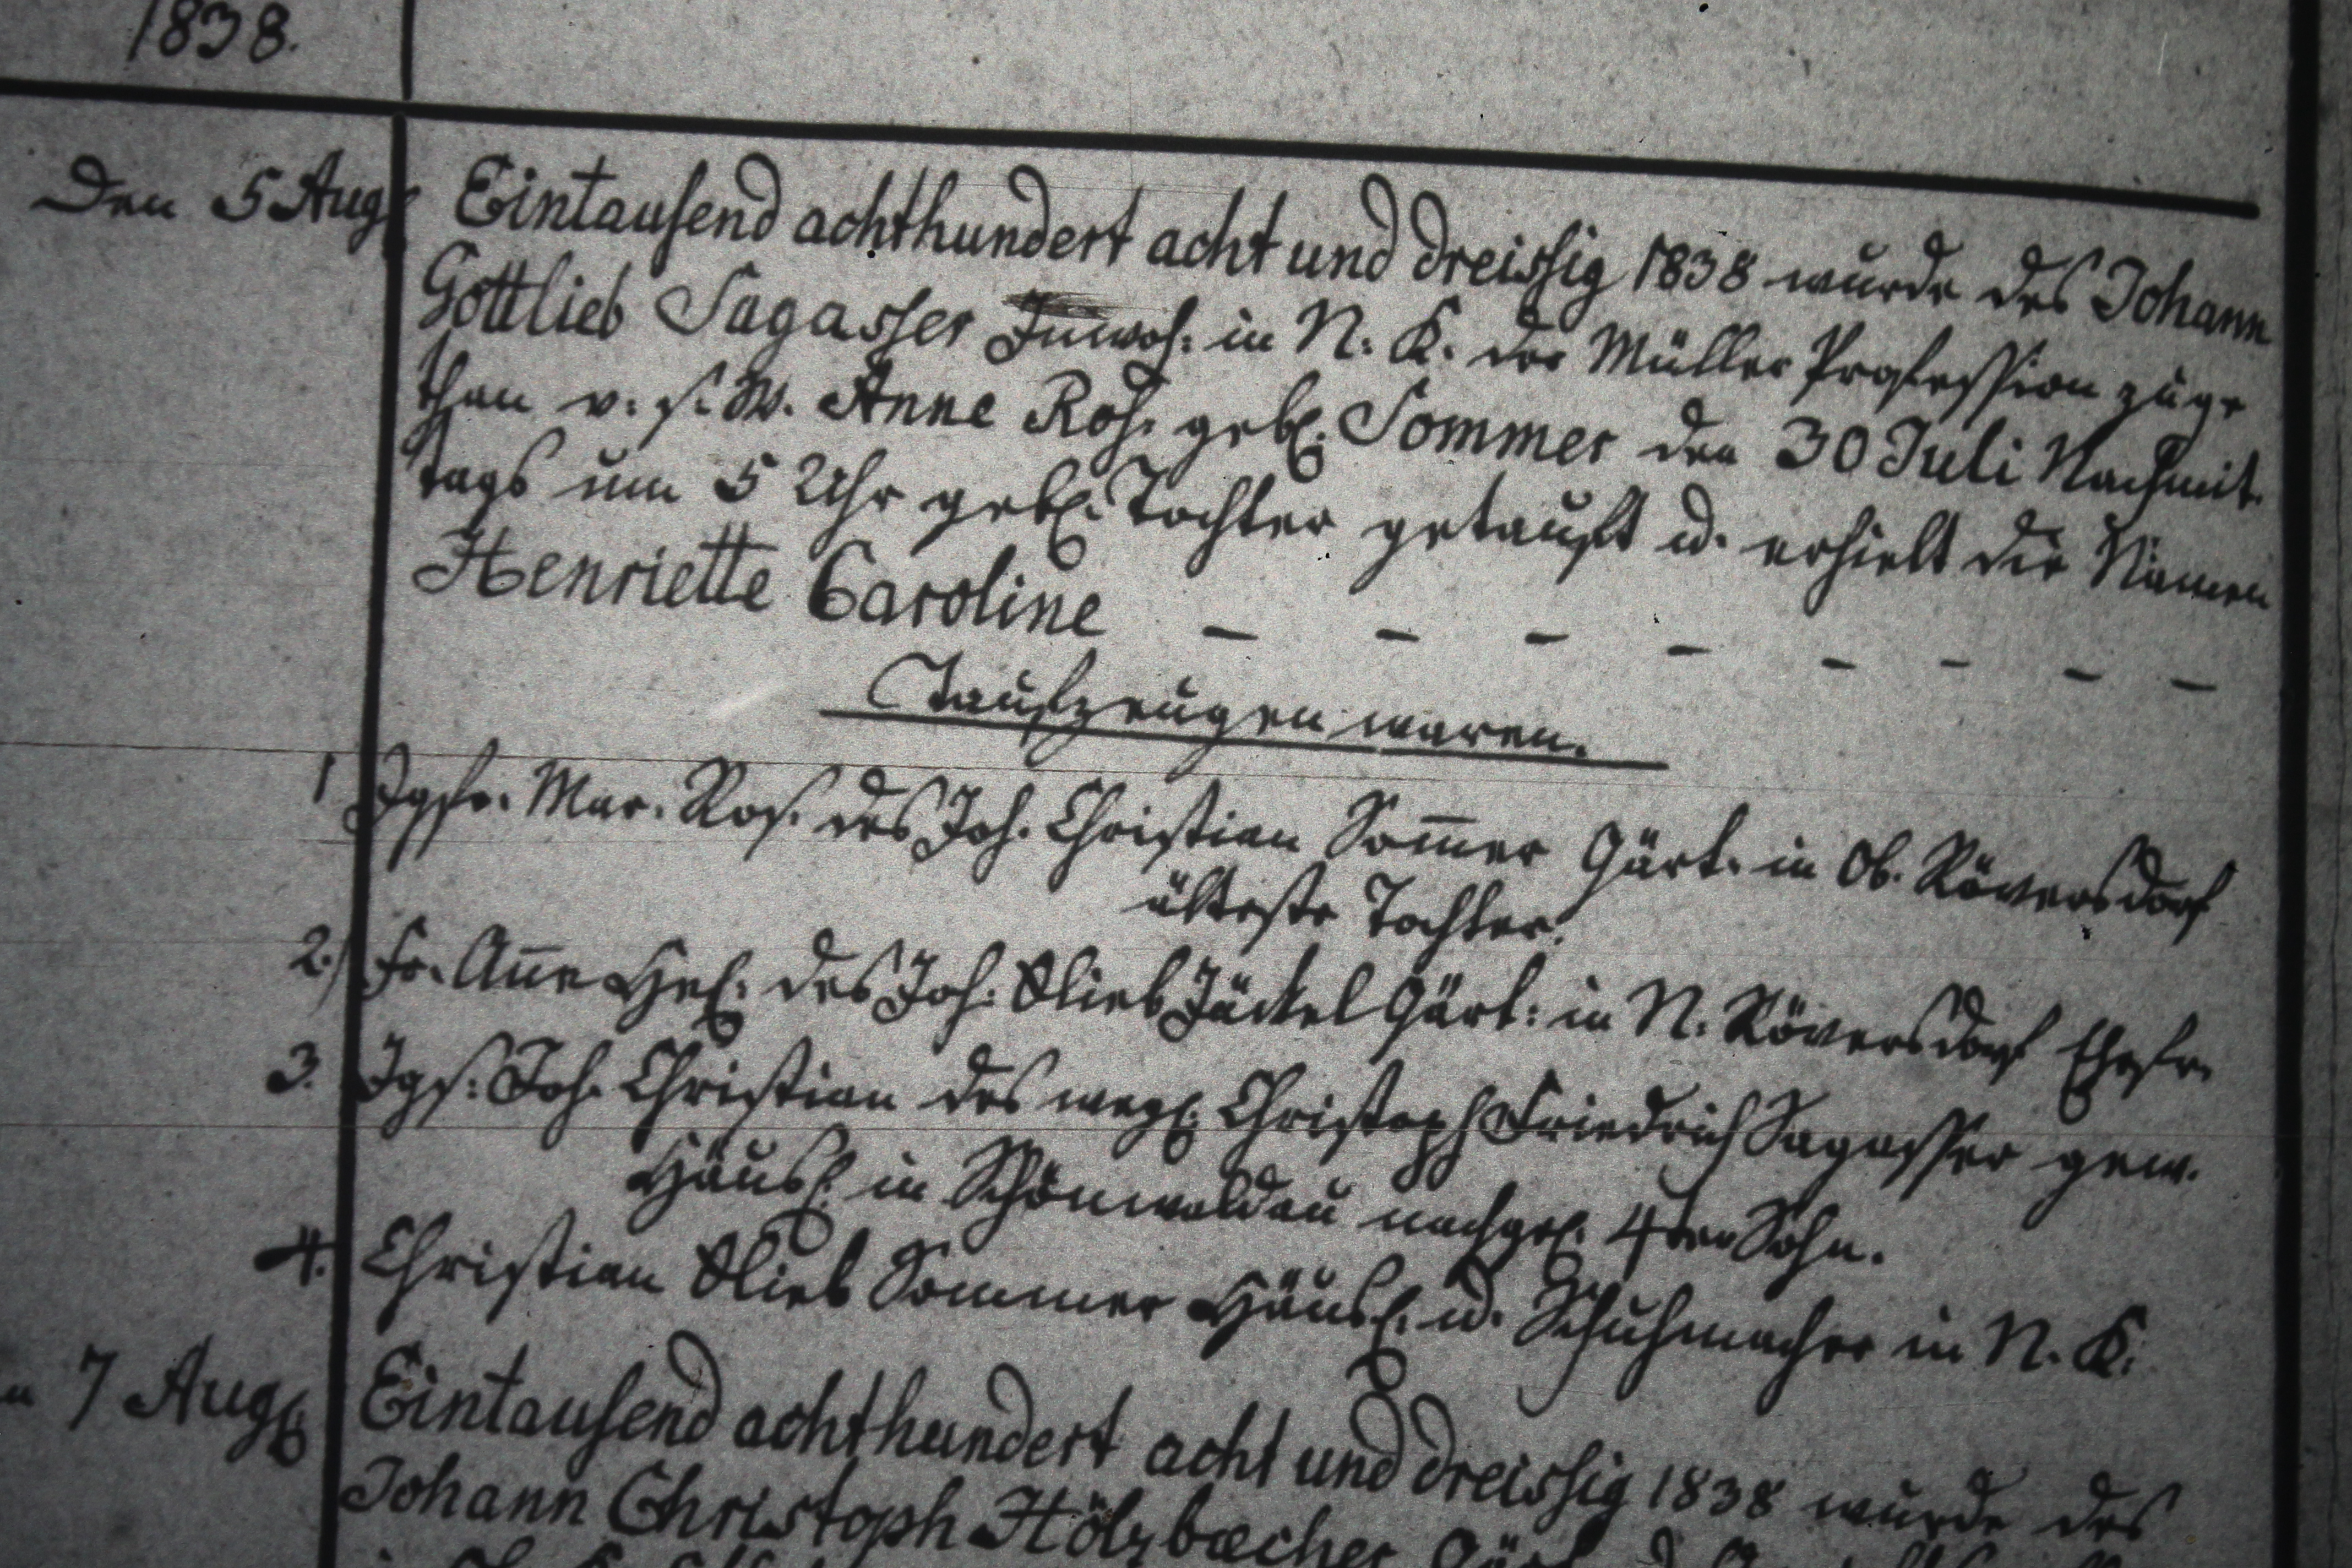 1838.
Den 5 Aug. Eintausend achthundert acht und dreissig 1838 wurde des Johann
Gottlieb Sagasser Inwoh: in N. K. der Müller Profession zuge
than v. s. W. Anne Ros. geb. Sommer den 30 Juli Nachmit.
tags um 5 Uhr geb. Tochter getauft u. erhielt die Namen
Henriette Caroline – – – – – – – –
Taufzeugen waren.
1 Jgfr. Mar. Ros. des Joh. Christian Som̅er Gärt. in Ob. Röversdorf
älteste Tochter.
2.) Fr. An̅e Hel. des Joh: Glieb Jäckel Gärt: in N. Röversdorf Ehefr.
3. Jgs: Joh. Christian des weyl. Christoph Friedrich Sagasser gew.
Häusl. in Schönwaldau nachgel. 4ter Sohn.
4. Christian Glieb Sommer Häusl. u. Schuhmacher in N. K.
7 Aug. Eintausend achthundert acht und dreissig 1838 wurde des
Johann Christoph Hölzbecher Gärt.